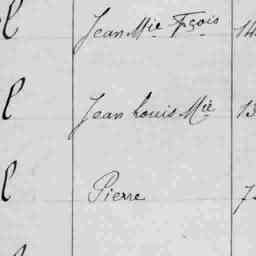 Jean Mie Fçois 14
Jean Louis Mie 13
Pierre